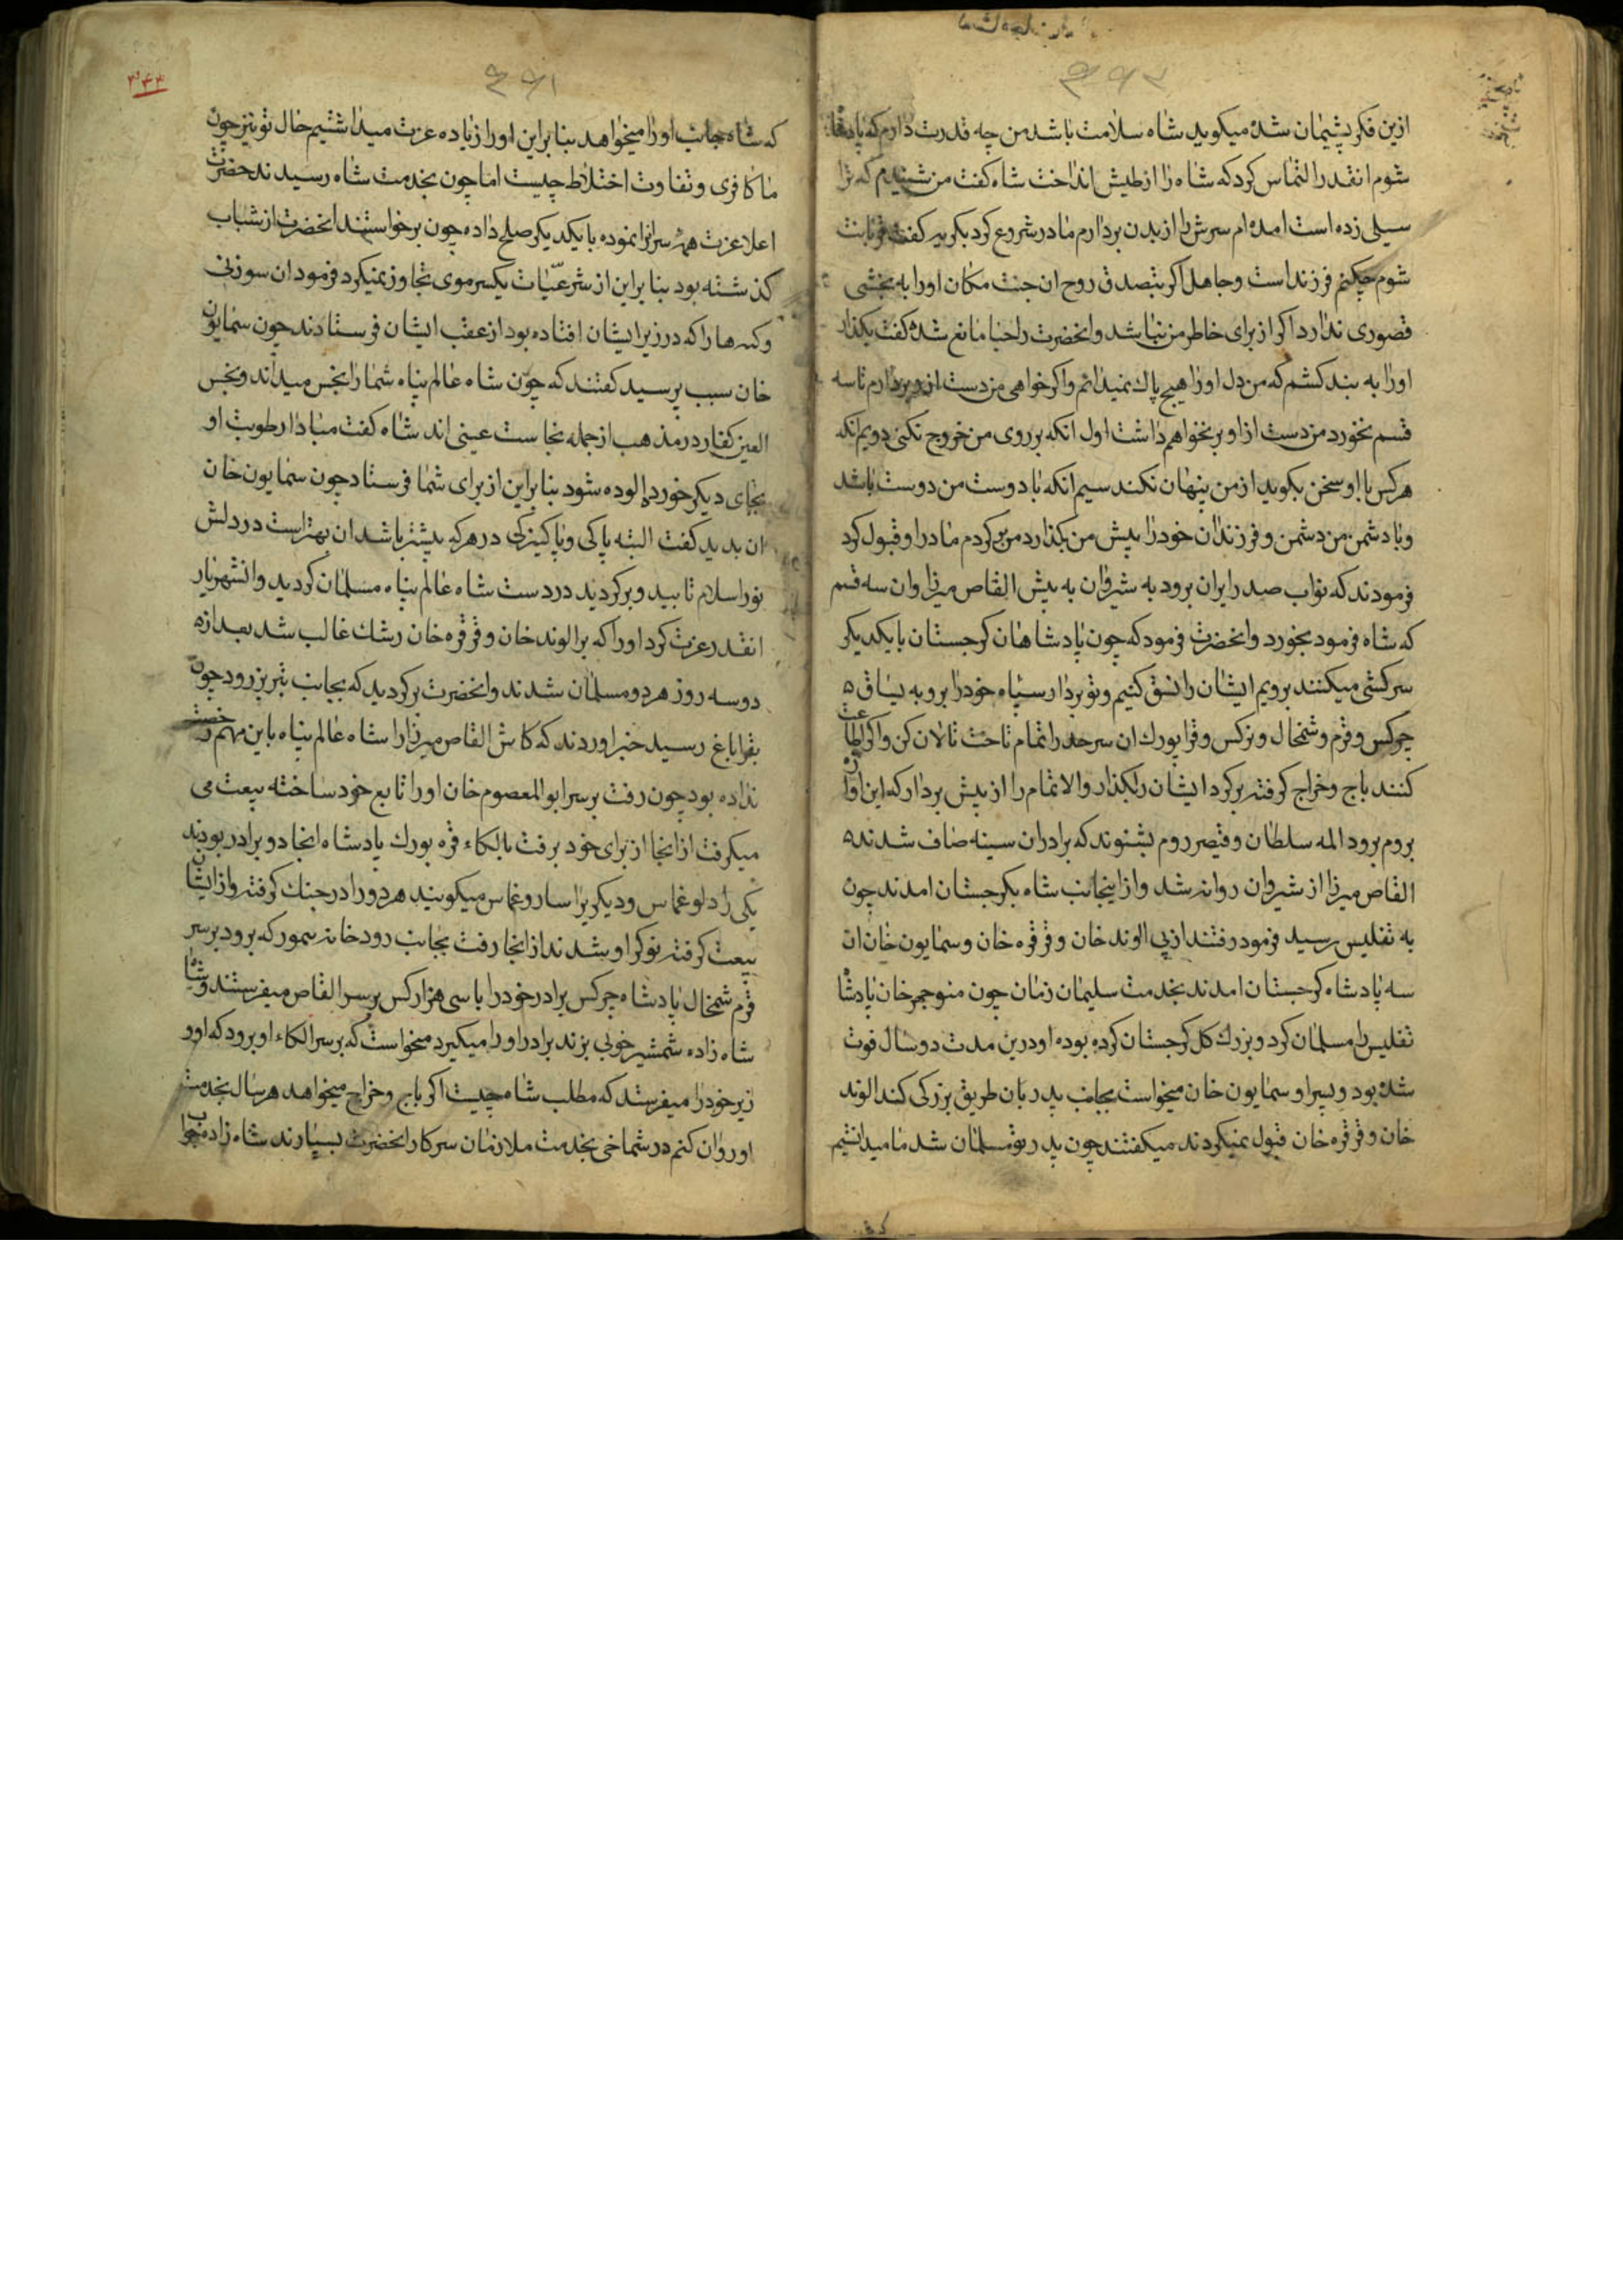 ازین فکر پشیمان شده میکوید شاه سلامت باشد من چه قدرت دارم که
شوم انقدر التماس کرد که شاه را از طیش انداخت شاه کفت من شنیدم که ترا
سیلی زده است امده ام سرش را از بدن بردارم مادر شروع کرد بکریه کفت قربانت
شوم چکنم فرزند است و جاهل اکر بتصدق روح ان جنت مکان اورا به بخشی
قصوری ندارد اکر از برای خاطر من نباشد وانحضرت را حیا مانع شده کفت بکذار
اورا به بند کشم که من دل اورا هیچ پاک نمیدانم واکر خواهی من دست از او بردارم تا سه
قسم نخورد من دست از او بر نخواهم داشت اول انکه بر روی من خروج نکنی دویم انکه
هرکس با او سخن بکوید از من پنهان نکند سیم انکه با دوست من دوست باشد
وبا دشمن من دشمن و فرزندان خود را پیش من بکذارد من کردم مادر او قبول کرد
فرمودند که نواب صدر ایران برود به شیروان به پیش القاص میرزا و ان سه قسم
که شاه فرمود بخورد وانحضرت فرمود که چون پادشاهان کرجستان بایکدیکر
سرکشی میکنند برویم ایشان را نسق کنیم وتو بردار سپاه خودرا برو به یساق
چرکس وقرم وشمخال و نرکس وقرابورک ان سرحد را تمام تاخت تالان کن واکر اطاعت
کنند باج وخراج کرفته برکرد ایشان را بکذار والا تمام را از پیش بردار که این اوازه
بروم برود المه سلطان وقیصر روم بشنوند که برادران سینه صاف شدند
القاص میرزا از شیروان روانه شد وازاینجانب شاه بکرجستان امدند چون
به تفلیس رسید فرمود رفتند از پی الوند خان وقرقره خان وسمایون خان ان
سه پادشاه کرجستان امدند بخدمت سلیمان زمان چون منوجهر خان پادشاه
تفلیس را مسلمان کرد وبزرک کل کرجستان کرده بود او درین مدت دوسال فوت
شده بود وپسر او سمایون خان میخواست بجانب پدر بان طریق بزرکی کند الوند
خان وقرقره خان قبول نمیکردند میکفتند چون پدر تو مسلمان شد ما میدانستیم
۳۴۴
که شاه جانب اورا میخواهد بنابراین اورا زیاده عزت میداشتیم حال تو نیز چون
ما کافری وتفاوت اختلاط چیست اما چون بخدمت شاه رسیدند حضرت
اعلا عزت همه سرانرا نموده بایکدیکر صلح داده چون برخواستند انحضرت از شباب
کذشته بود بنابراین از شرعیّات یکسر موی تجاوز نمیکرد فرمود ان سوزنی
وکپه هارا که در زیر ایشان افتاده بود از عقب ایشان فرستادند چون سمایون
خان سبب پرسید کفتند که چون شاه عالم پناه شمارا نجس میداند ونجس
العین کفار در مذهب از جمله نجاست عینی اند شاه کفت مبادا رطوبت او
بجای دیکر خورد والوده شود بنابراین از برای شما فرستاد چون سمایون خان
ان بدید کفت البته پاکی وپاکیزکی در هرکه بیشتر باشد ان بهتراست در دلش
نور اسلام تابید وبرکردید در دست شاه عالم پناه مسلمان کردید وانشهریار
انقدر عزت کرد اورا که بر الوند خان وقرقره خان رشک غالب شد بعد از
دوسه روز هر دو مسلمان شدند وانحضرت برکردید که بجانب تبریز رود چون
بقراباغ رسید خبر اوردند که کاش القاص میرزارا شاه عالم پناه باین مهم رخصت
نداده بود چون رفت بر سر ابوالمعصوم خان اورا تابع خود ساخته بیعت می
میکرفت از انجا از برای خود برفت بالکاء قره بورک پادشاه انجا دو برادر بودند
یکی را دلو غماس ودیکریرا سارو غماس میکویند هر دو را در جنک کرفته واز ایشان
بیعت کرفته نوکر او شدند از انجا رفت بجانب رودخانه سمور که برود بر سر
قرم شمخال پادشاه چرکس برادر خودرا با سی هزار کس بر سر القاص میفرستند وشاه
شاه زاده شمشیر خوبی بزند برادر اورا میکیرد میخواست که بر سر الکاء او برود که اور
زیر خودرا میفرستد که مطلب شاه چیست اکر باج وخراج میخواهد هرسال بخدمت
او روان کنم در شماخی بخدمت ملازمان سرکار انحضرت بسپارند شاه زاده